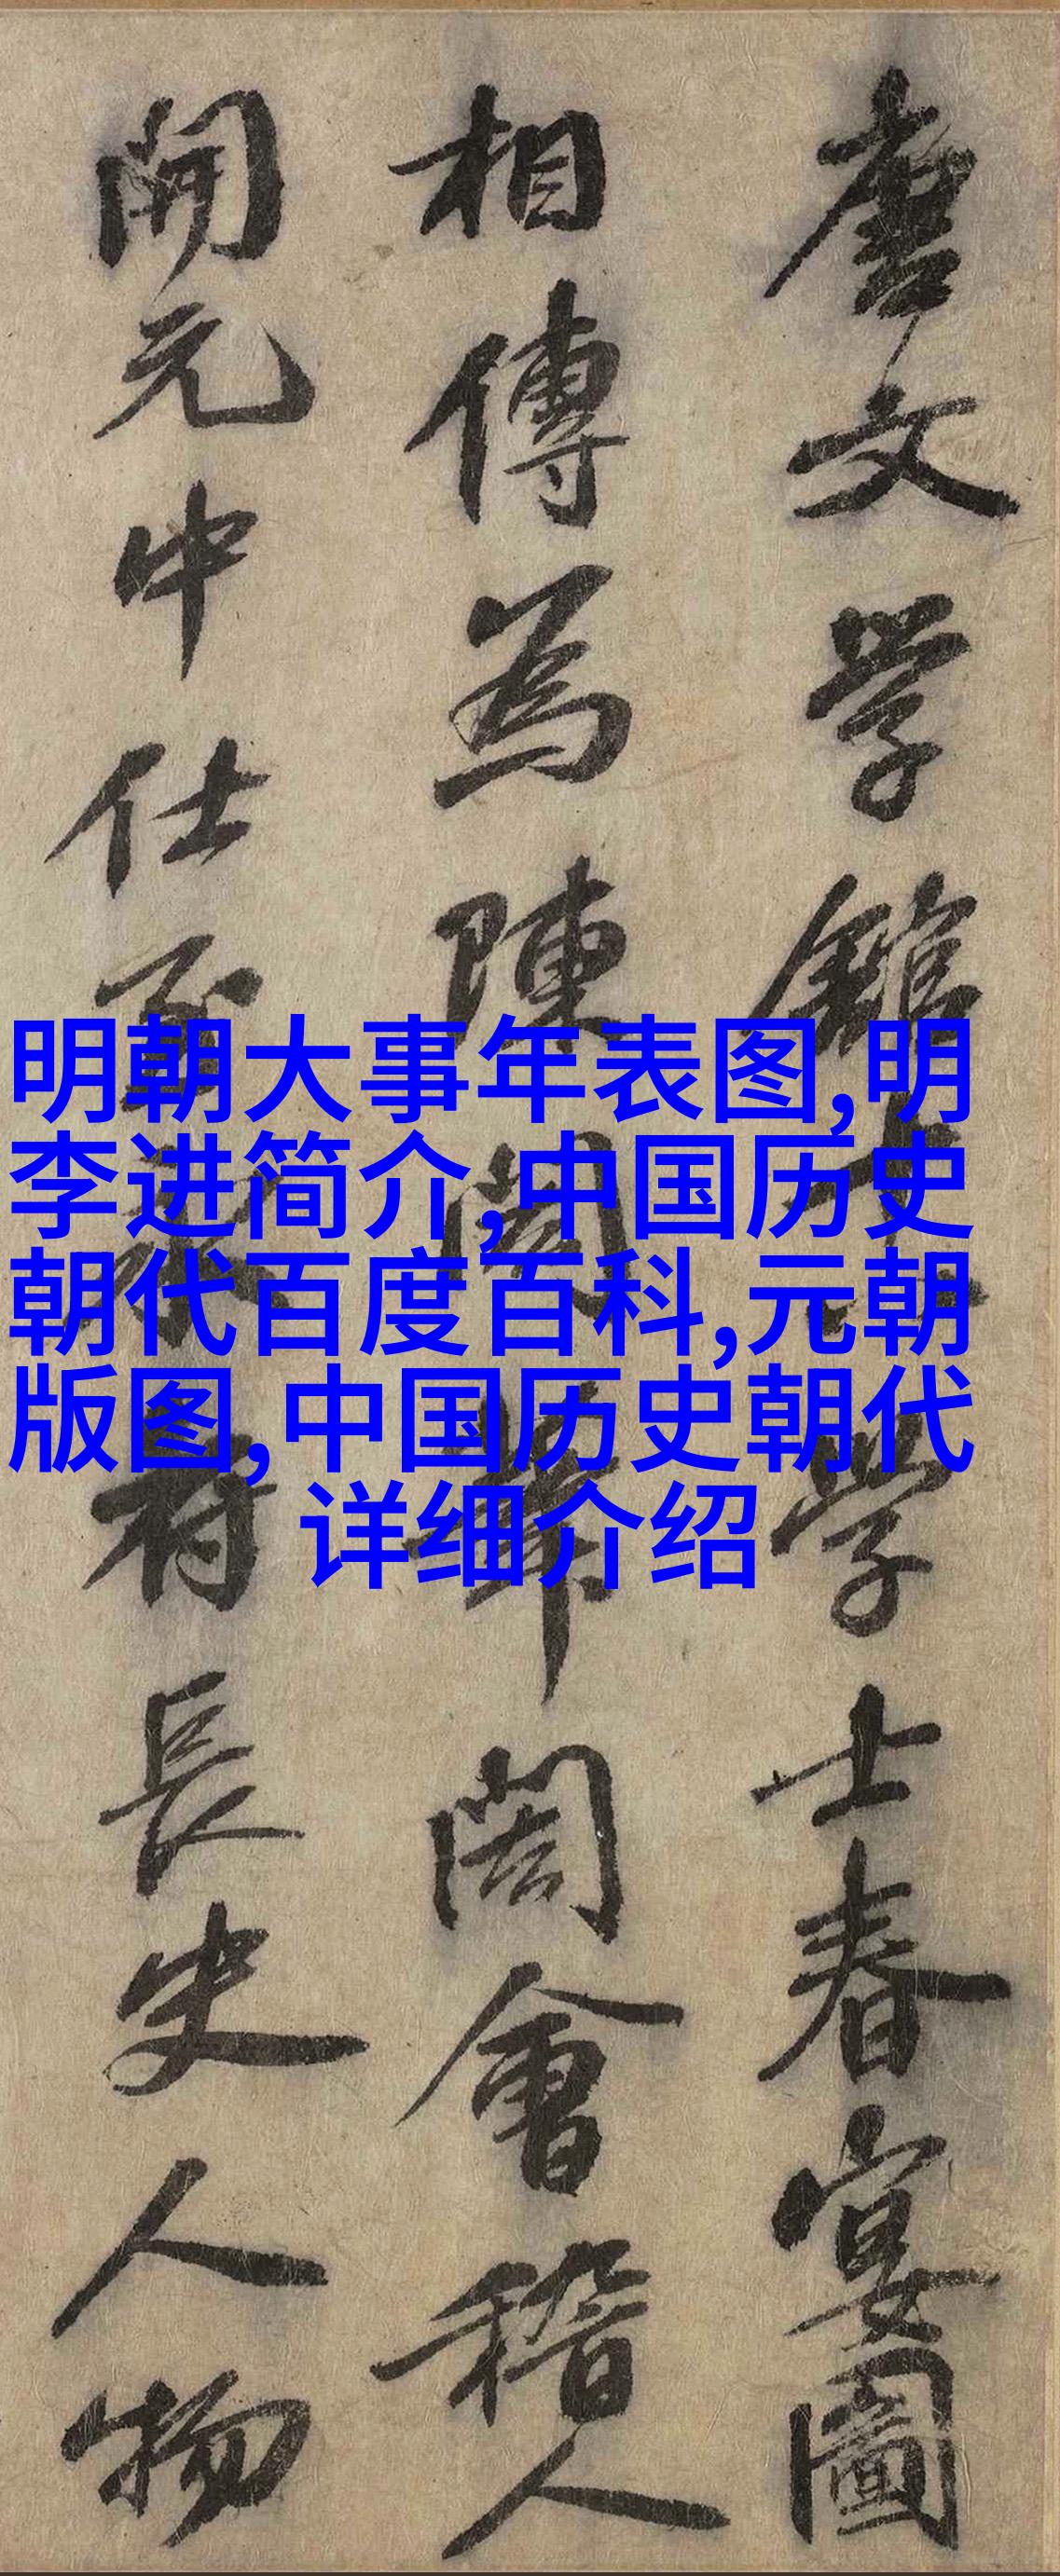 唐文学館学士春宴圖
相傳為陳閎筆閎會稽人
開元中仕至府長史人物
明朝大事年表图,明
李进简介,中国历史
朝代百度百科,元朝
版图,中国历史朝代
详细介绍